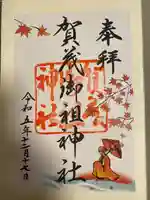 奉拝
賀茂御祖神社
神社
令和五年十二月十七日